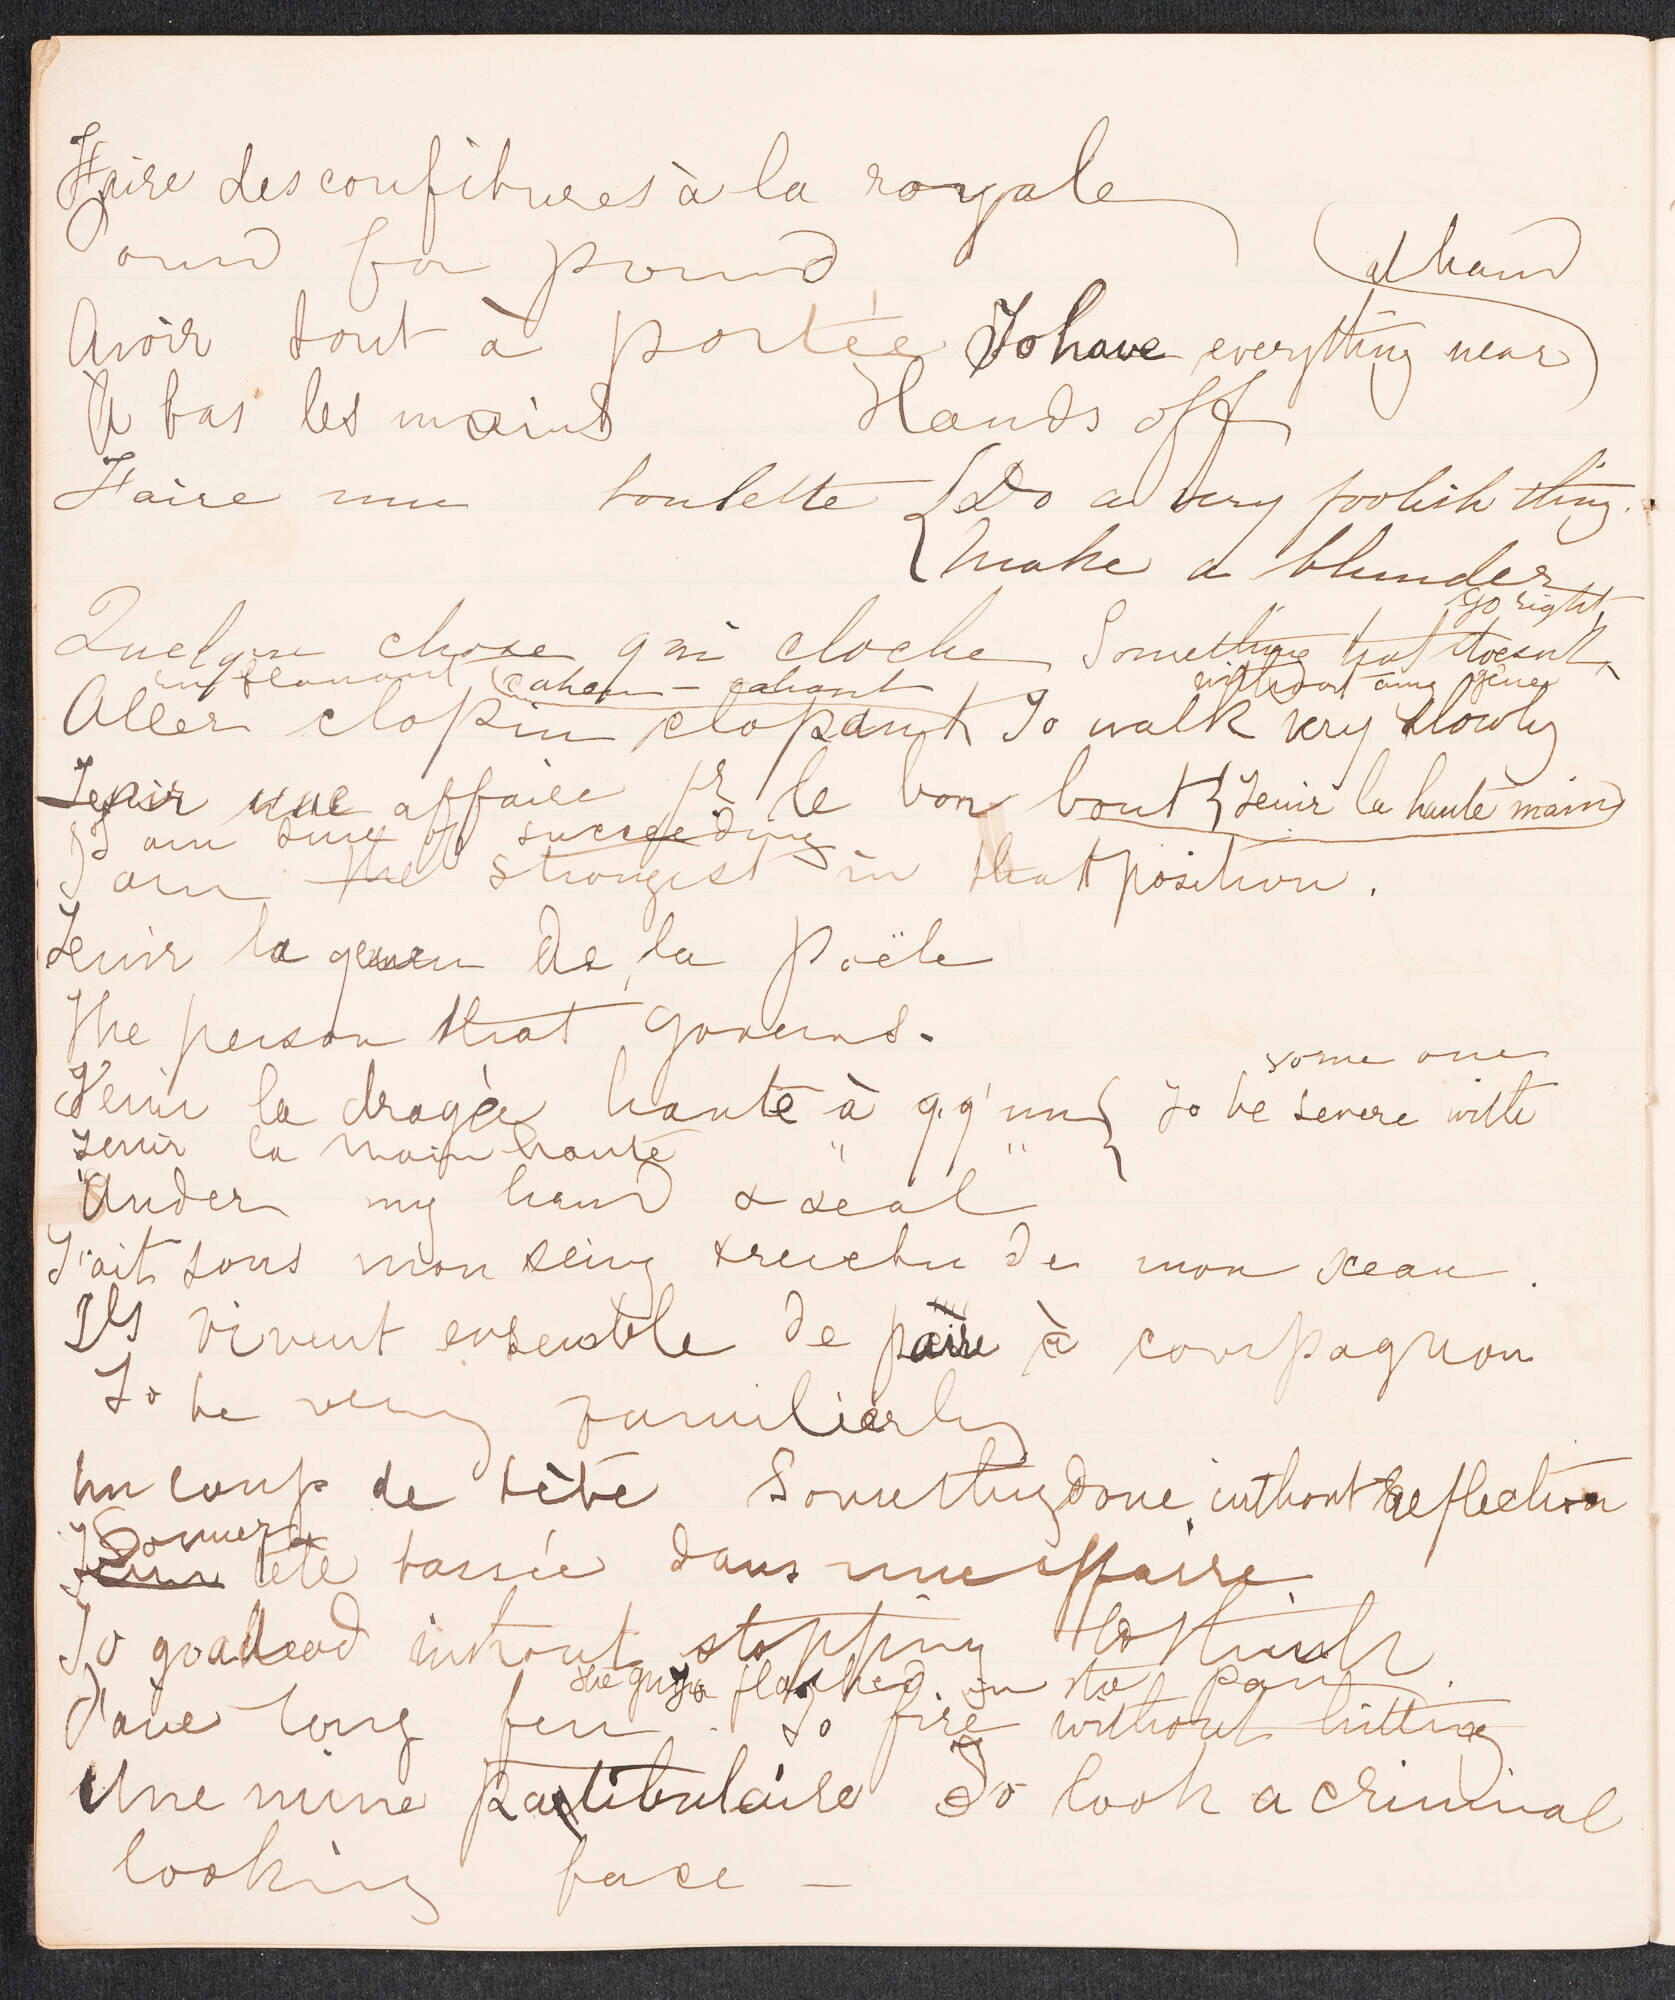 Faire des confitures à la royale
ound for pound
at hand
Avoir tout à portée To have everything near
A bas les mains Hands off
Faire une boulette { Do a very foolish thing.
Make a blunder
go right
Quelque chose qui cloche Something that doesnt
en flanant cahin-cahant without any gêne
Aller clopin clopant To walk very slowly
Tenir une affaire pr le bon bout { Tenir la haute main
I am sure of succeeding
I am the strongest in that position.
Tenir la queu de la poële
The person that governs.
some one
Tenir la dragée haute à q.q'un } To be severe with
Tenir la main haute " "
Under my hand & seal
Fait sous mon seing & revetu de mon sceau.
Ils vivent ensemble de paire à compagnon
To be very familierly
Un coup de tête Something done without reflection
Donner
Tenir tête baissée dans une affaire
To go ahead without stopping to think.
The gun flashed in the pan.
Faire long feu. To fire without hitting
Une mine patibulaire To look a criminal
looking face —